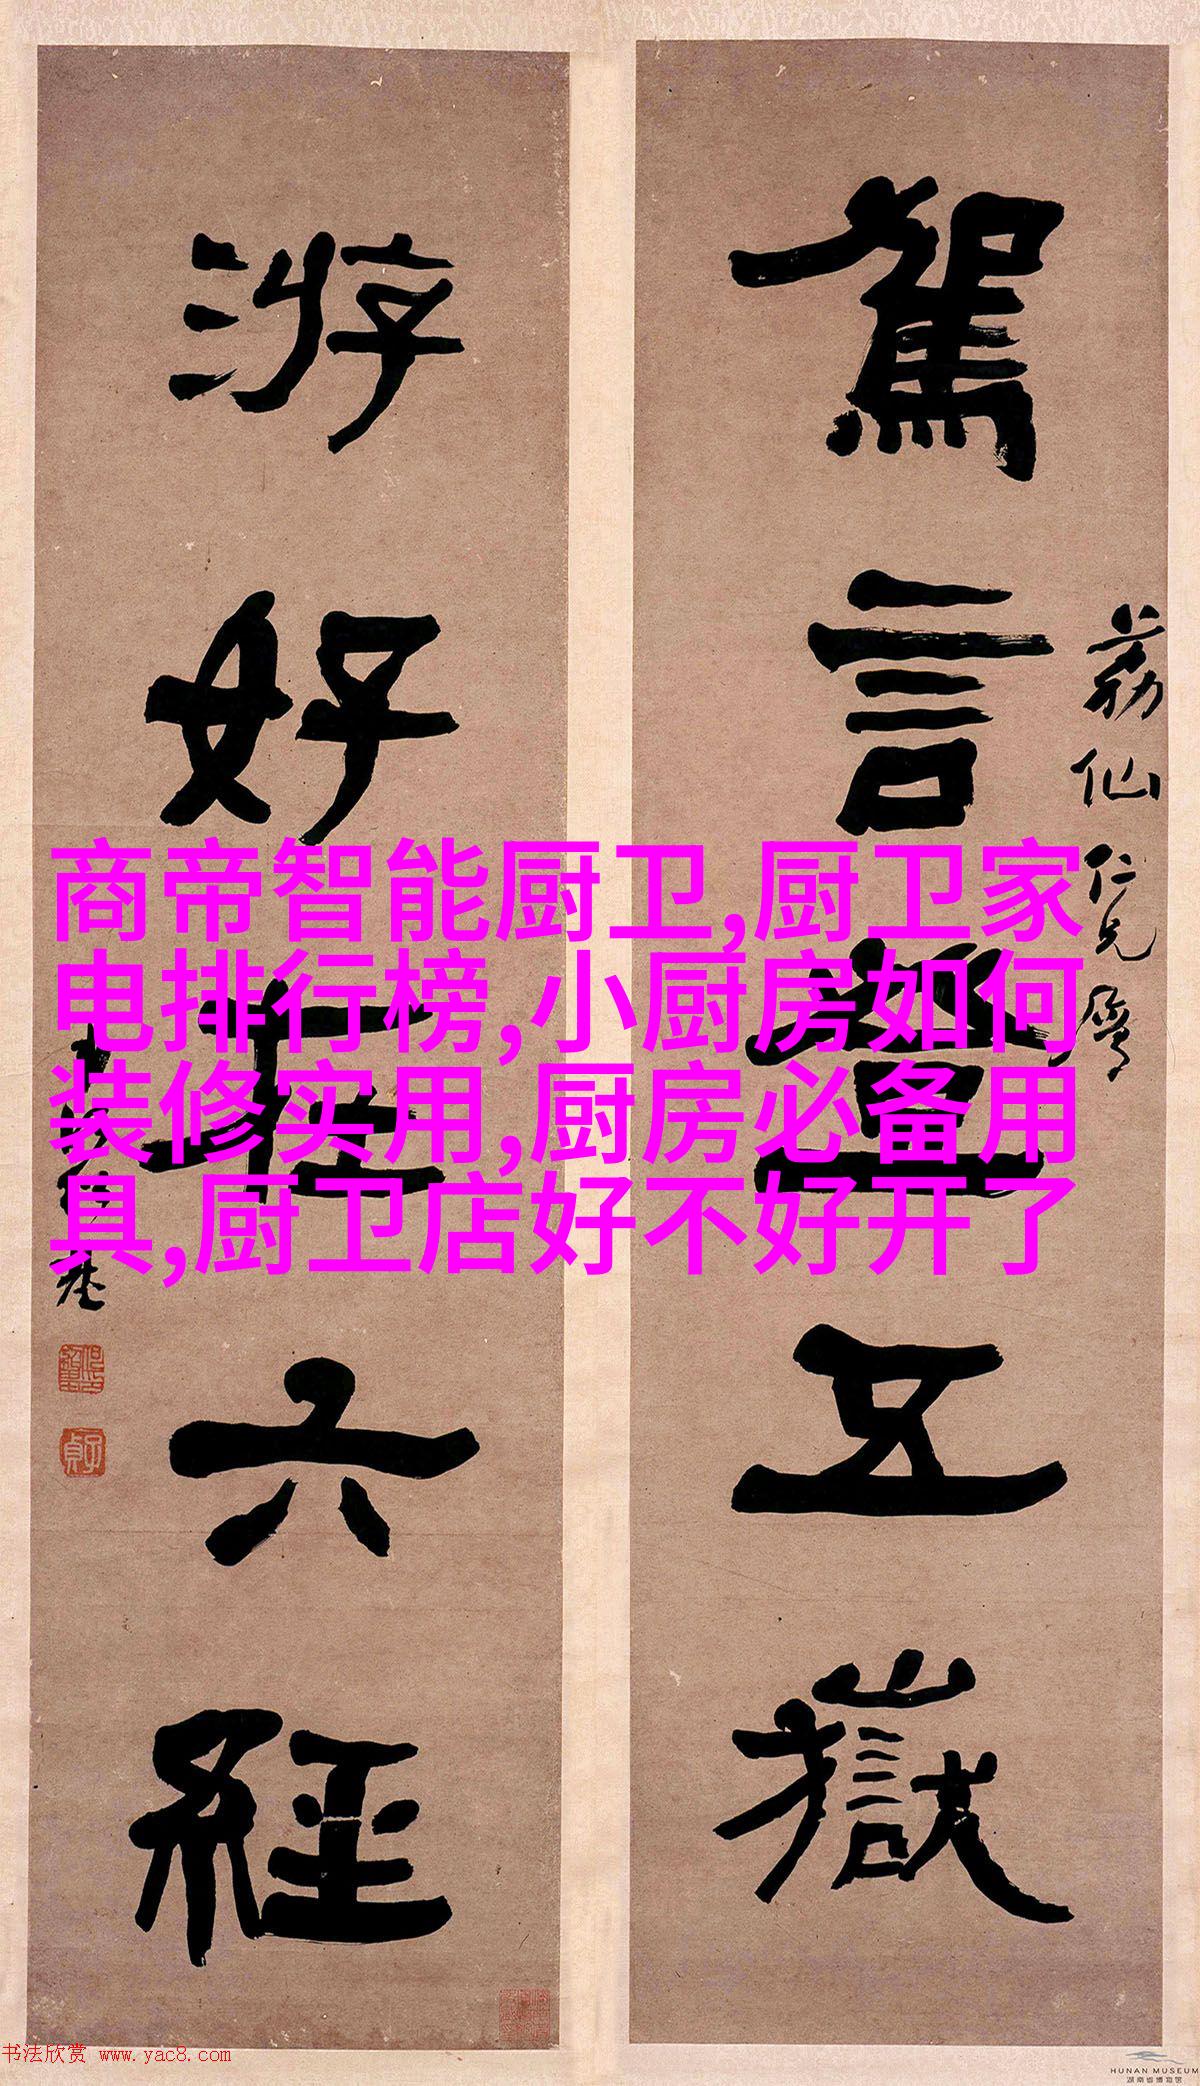 駕言登五嶽
荔仙仁兄屬
游好在六經
子貞
商帝智能厨卫,厨卫家
电排行榜,小厨房如何
装修实用,厨房必备用
具,厨卫店好不好开了
书法欣赏 www.yac8.com
HUNAN MUSEUM
湖南省博物馆